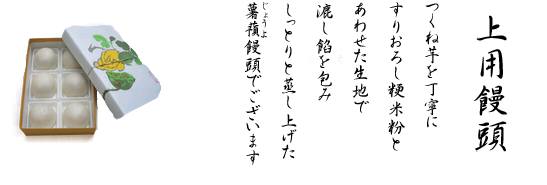 上用饅頭
つくね芋を丁寧に
すりおろし粳米粉と
あわせた生地で
漉し餡を包み
しっとりと蒸し上げた
薯蕷饅頭でございます
じょうよ